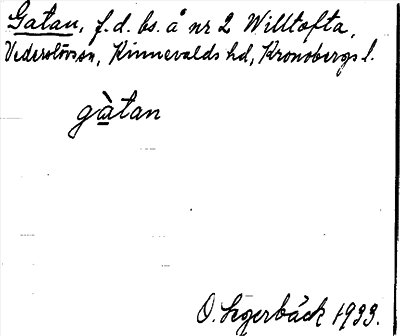 Gatan, f.d. bs. å nr 2 Willtofta,
Vederslövs sn, Kinnevalds hd, Kronobergs l.
gàtan
O. Segerbäck 1933.